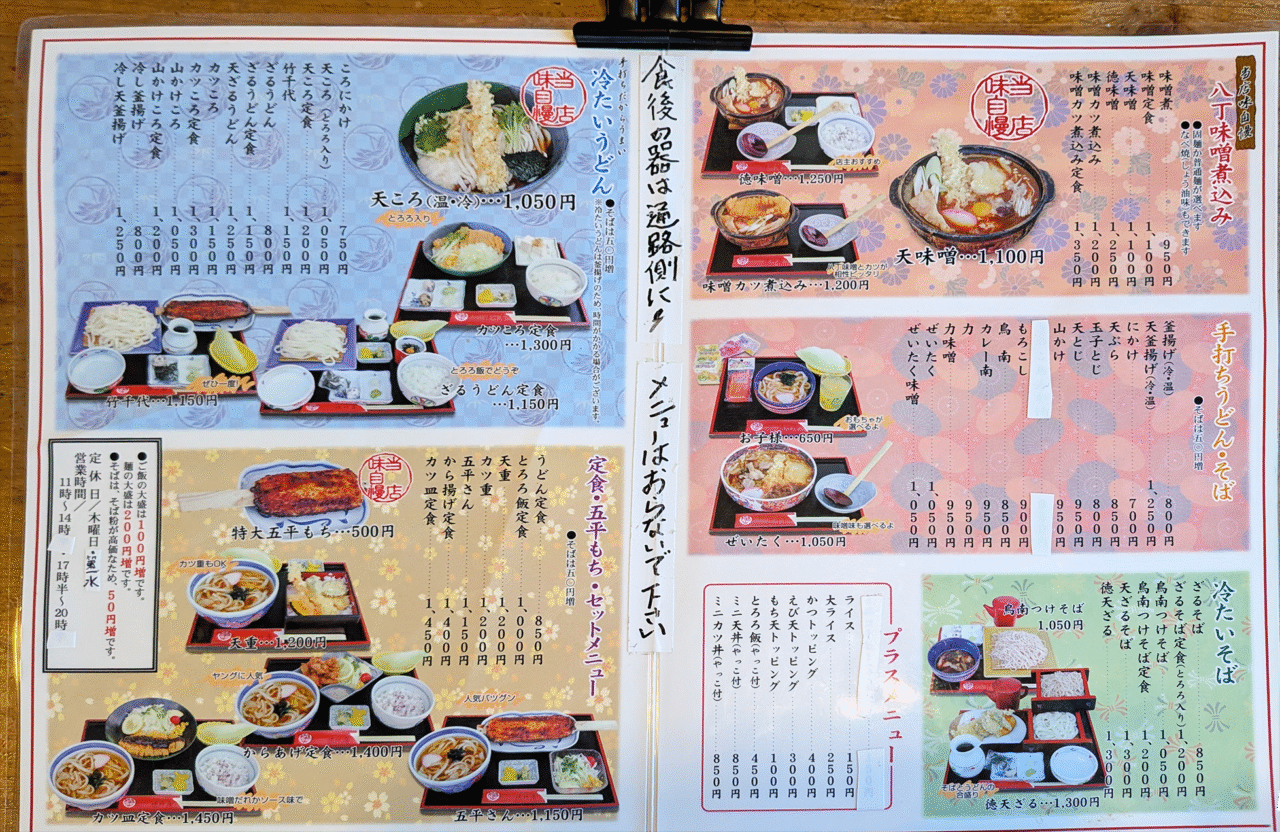 食後の器は通路側に。
メニューはおらないで下さい
当店味自慢
八丁味噌煮込み
●固麺か普通麺が選べます
●なべ焼(しょう油味)もできます
味噌煮…950円
味噌定食…1,100円
天味噌…1,100円
徳味噌…1,250円
味噌カツ煮込み…1,200円
味噌カツ煮込み定食…1,350円
当店味自慢
天味噌…1,100円
店主おすすめ
徳味噌…1,250円
八丁味噌とカツが
相性ピッタリ
味噌カツ煮込み…1,200円
手打ちうどん・そば
●そばは五〇円増
釜揚げ(冷・温)…800円
天釜揚げ(冷・温)…1,250円
にかけ…700円
天ぷら…950円
玉子とじ…800円
天とじ…950円
山かけ…950円
もろこし…900円
鳥南…850円
カレー南…950円
力…950円
力味噌…950円
ぜいたく…1,050円
ぜいたく味噌…1,050円
おもちゃが
選べるよ
お子様…650円
味噌味も選べるよ
ぜいたく…1,050円
冷たいそば
ざるそば…850円
ざるそば定食(とろろ入り)…1,200円
鳥南つけそば…1,050円
鳥南つけそば定食…1,200円
天ざるそば…1,300円
徳天ざる…1,300円
鳥南つけそば
1,050円
そばとうどんの
合盛り
徳天ざる…1,300円
プラスメニュー
ライス…150円
大ライス…250円
かつトッピング…400円
えび天トッピング…300円
もち天トッピング…100円
とろろ飯(やっこ付)…450円
ミニ天丼(やっこ付)…850円
ミニカツ丼(やっこ付)…850円
手打ちだからうまい
冷たいうどん
●そばは五〇円増
※冷たいうどんは釜揚げのため、時間がかかる場合がございます。
当店味自慢
天ころ(温・冷)…1,050円
とろろ入り
ころにかけ…750円
天ころ(とろろ入り)…1,050円
天ころ定食…1,200円
竹千代…1,150円
ざるうどん…800円
ざるうどん定食…1,150円
天ざるうどん…1,250円
カツころ…1,150円
カツころ定食…1,300円
山かけころ…1,050円
山かけころ定食…1,200円
冷し釜揚げ…800円
冷し天釜揚げ…1,250円
カツころ定食
…1,300円
とろろ飯でどうぞ
ざるうどん定食
…1,150円
ぜひ一度!
竹千代…1,150円
定食・五平もち・セットメニュー
●そばは五〇円増
うどん定食…850円
とろろ飯定食…1,000円
天重…1,200円
カツ重…1,200円
五平さん…1,150円
から揚げ定食…1,400円
カツ皿定食…1,450円
当店味自慢
特大五平もち…500円
カツ重もOK
天重…1,200円
ヤングに人気
からあげ定食…1,400円
人気バツグン
五平さん…1,150円
味噌だれかソース味で
カツ皿定食…1,450円
●ご飯の大盛は100円増です。
麺の大盛は200円増です。
●そばは、そば粉が高価なため、50円増です。
定休日/木曜日・第一水
営業時間/
11時〜14時・17時半〜20時